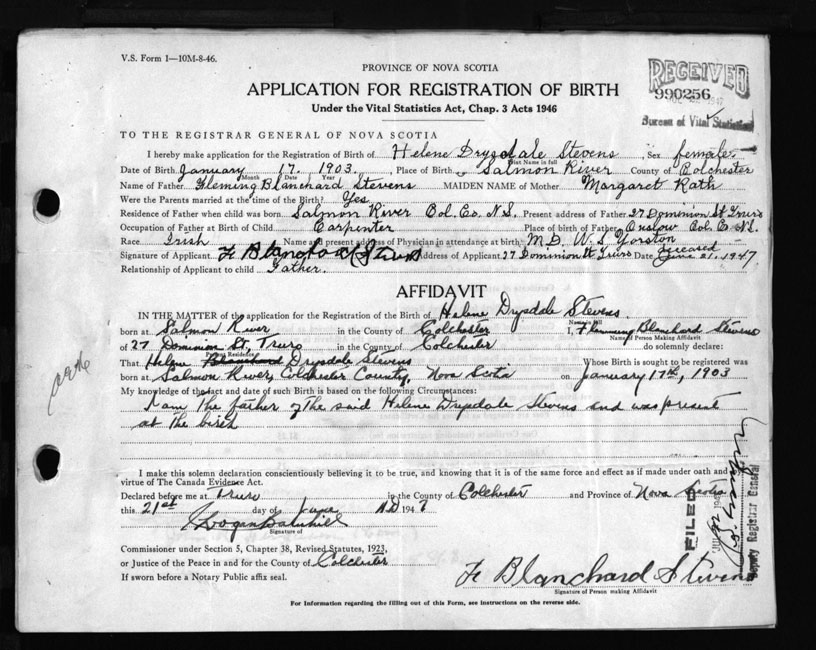 V.S. Form 1—10M-8-46.
PROVINCE OF NOVA SCOTIA
RECEIVED
990256
Bureau of Vital Statistics
APPLICATION FOR REGISTRATION OF BIRTH
Under the Vital Statistics Act, Chap. 3 Acts 1946
TO THE REGISTRAR GENERAL OF NOVA SCOTIA
I hereby make application for the Registration of Birth of Helene Drysdale Stevens, Sex female.
Print Name in full
Date of Birth January 17. 1903. , Place of Birth Salmon River County of Colchester
Month Date Year
Name of Father Fleming Blanchard Stevens MAIDEN NAME of Mother Margaret Rath
Were the Parents married at the time of the Birth? Yes
Residence of Father when child was born Salmon River Col. Co. N.S. Present address of Father 27 Dominion St Truro
Occupation of Father at Birth of Child Carpenter Place of birth of Father Onslow Col. Co N.S.
Race Irish Name and present address of Physician in attendance at birth M.D. W.S. Yorston
deceased
Signature of Applicant F. Blanchard Stevens Address of Applicant 27 Dominion St Truro Date June 21. 1947
Relationship of Applicant to child Father.
AFFIDAVIT
IN THE MATTER of the application for the Registration of the Birth of Helene Drysdale Stevens
born at Salmon River in the County of Colchester I, Flemming Blanchard Stevens
Name of Person Making Affidavit
of 27 Dominion St, Truro in the County of Colchester do solemnly declare:
Residence
That Helene Blanchard Drysdale Stevens Whose Birth is sought to be registered was
born at Salmon River, Colchester County, Nova Scotia on January 17th, 1903
My knowledge of the fact and date of such Birth is based on the following Circumstances:
I am the father of the said Helene Drysdale Stevens and was present
at the birth
I make this solemn declaration conscientiously believing it to be true, and knowing that it is of the same force and effect as if made under oath and by
virtue of The Canada Evidence Act.
Declared before me at Truro in the County of Colchester and Province of Nova Scotia
this 21st day of June AD 1947
Signature of
Commissioner under Section 5, Chapter 38, Revised Statutes, 1923,
or Justice of the Peace in and for the County of Colchester
If sworn before a Notary Public affix seal.
F. Blanchard Stevens
Signature of Person making Affidavit
For Information regarding the filling out of this Form, see instructions on the reverse side.
FILED
Deputy Registrar General